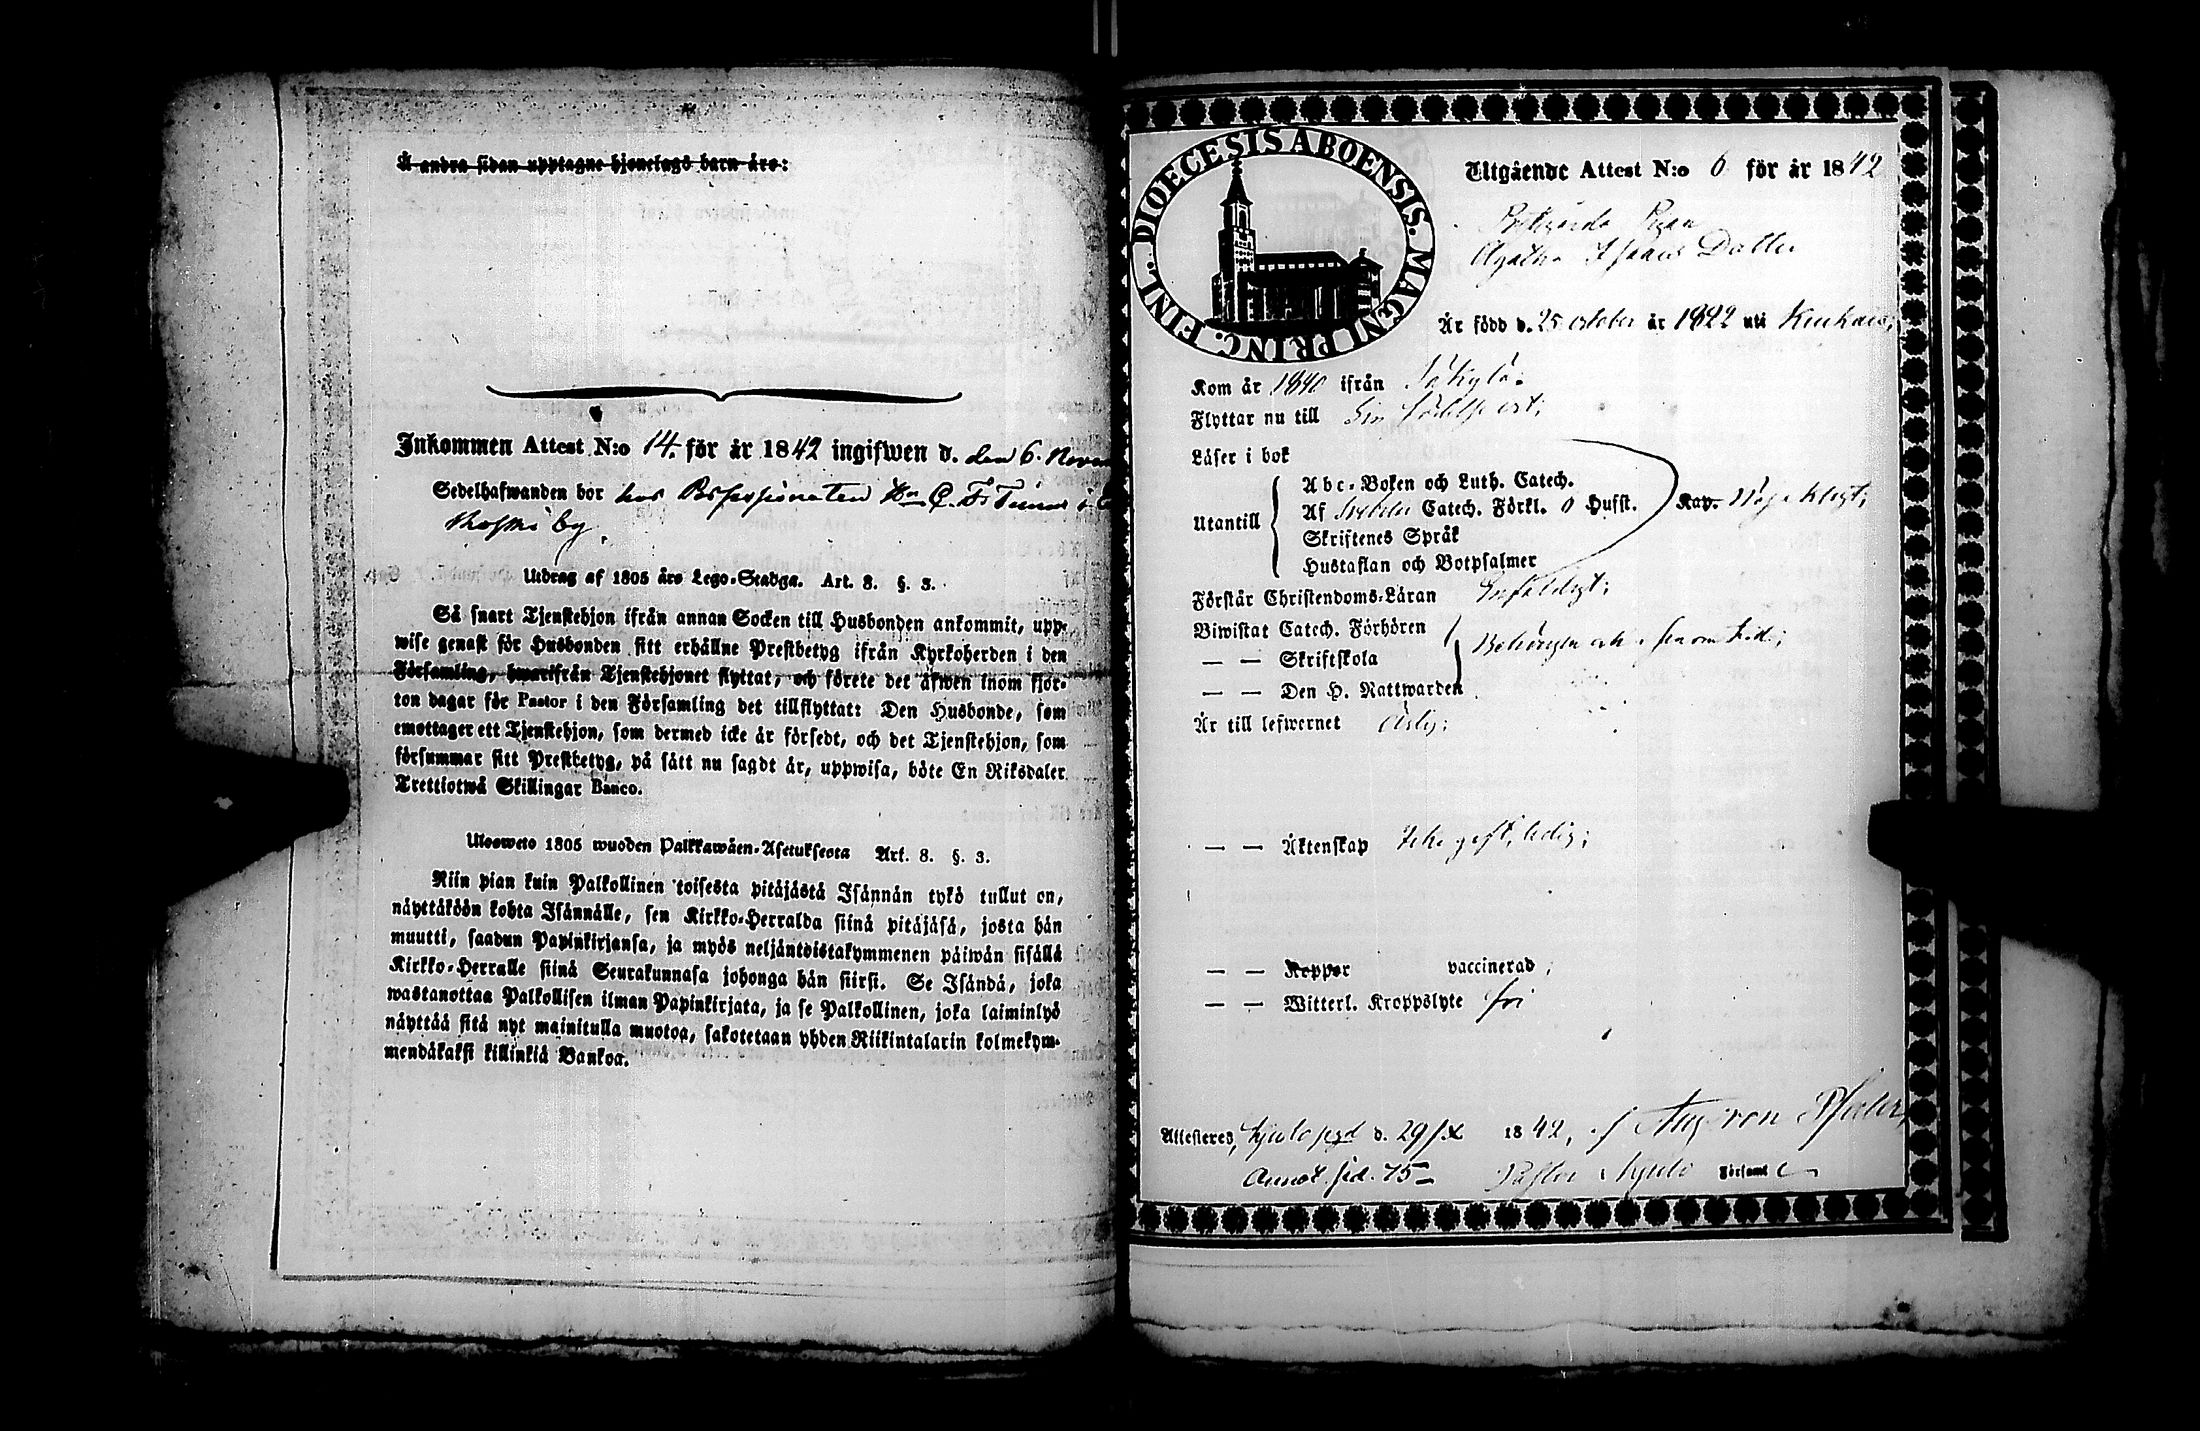 Å andra sidan upptagne hjonelags barn äro:
Inkommen Attest N:o 14. för år 1842 ingifwen d. den 6. Novem
Sedelhafwanden bor hos
by.
Utdrag af 1805 års Lego-Stadga. Art. 8. §. 3.
Så snart Tjenstehjon ifrån annan Socken till Husbonden ankommit, upp-
wise genast för Husbonden sitt erhållne Prestbetyg ifrån Kyrkoherden i den
Församling, hwarifrån Tjenstehjonet flyttat, och förete det äfwen inom fjor-
ton dagar för Pastor i den Församling det tillflyttat: Den Husbonde, som
emottager ett Tjenstehjon, som dermed icke är försedt, och det Tjenstehjon, som
försummar sitt Prestbetyg, på sätt nu sagdt är, uppwisa, böte En Riksdaler
Trettiotwå Skillingar Banco.
Ulosweto 1805 wuoden Palkkawäen-Asetuksesta Art. 8. §. 3.
Niin pian kuin Palkollinen toisesta pitäjästä Isännän tykö tullut on,
näyttäköön kohta Isännälle, sen Kirkko-Herralda siinä pitäjäsä, josta hän
muutti, saadun Papinkirjansa, ja myös neljäntoistakymmenen päiwän sisällä
Kirkko-Herralle siinä Seurakunnasa johonga hän siirsi. Se Isändä, joka
wastanottaa Palkollisen ilman Papinkirjata, ja se Palkollinen, joka laiminlyö
näyttää sitä nyt mainitulla muotoa, sakotetaan yhden Riikintalarin kolmekym-
mendäkaksi killinkiä Bankoa.
DIOECESIS ABOENSIS. MAGNI PRINC. FINL.
Utgående Attest N:o 6 för år 1842
Pigan
Agatha Isaacs Dotter
Är född d. 25 october år 1822 uti Kiukais;
Kom år 1840 ifrån Säkylä;
Flyttar nu till sin födelseort;
Läser i bok
Abc-Boken och Luth. Catech.
Utantill Af Svebelii Catech. Förkl. o Hufst. Kap. Nöjaktligt;
Skriftenes Språk
Hustaflan och Botpsalmer
Förstår Christendoms-Läran Enfaldigt;
Biwistat Catech. Förhören
— — Skriftskola
— — Den H. Nattwarden
Är till lefwernet Ärlig;
— — Äktenskap Icke gift, ledig;
— — Koppor vaccinerad;
— — Witterl. Kroppslyte fri
Attesteras, Kjulo pgd d. 29/x 1842, Aug: von Pfaler,
Annot. sid. 75 Pastor Kjulo Församl